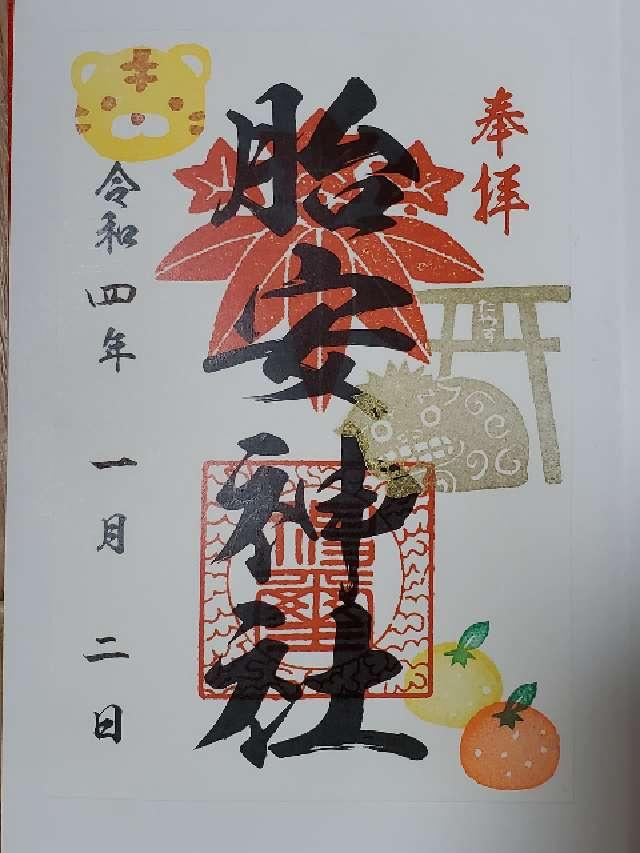 奉拝
胎安神社
令和四年 一月 二日